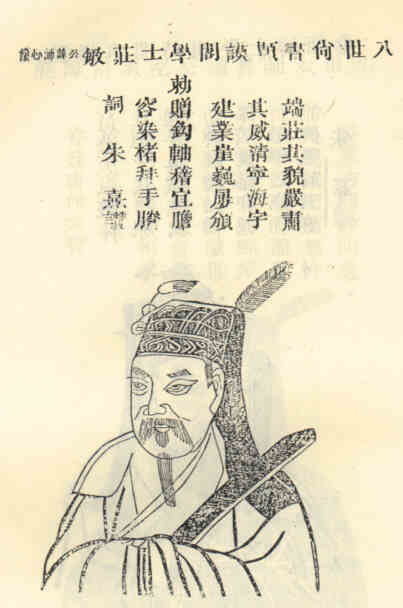 八世尚書閣學士莊敏公諱
端莊其貌嚴肅
其威清寧海宇
建業崖巍屢頒
勅贈鈞軸稽宜
容染楮拜手謄
詞朱熹讚